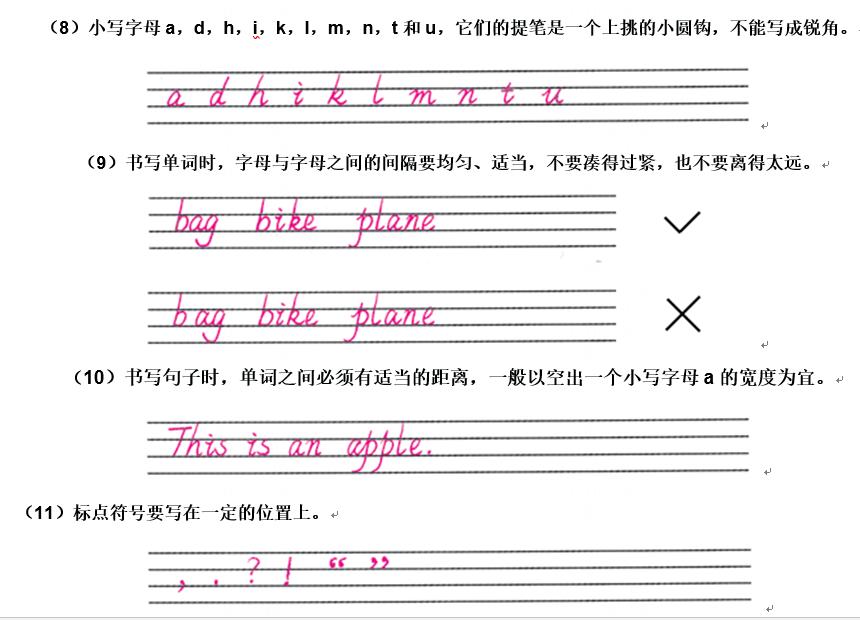 （8）小写字母 a，d，h，i，k，l，m，n，t 和 u，它们的提笔是一个上挑的小圆钩，不能写成锐角。
a d h i k l m n t u
（9）书写单词时，字母与字母之间的间隔要均匀、适当，不要凑得过紧，也不要离得太远。
bag bike plane
bag bike plane
（10）书写句子时，单词之间必须有适当的距离，一般以空出一个小写字母 a 的宽度为宜。
This is an apple.
（11）标点符号要写在一定的位置上。
, . ? ! “ ”